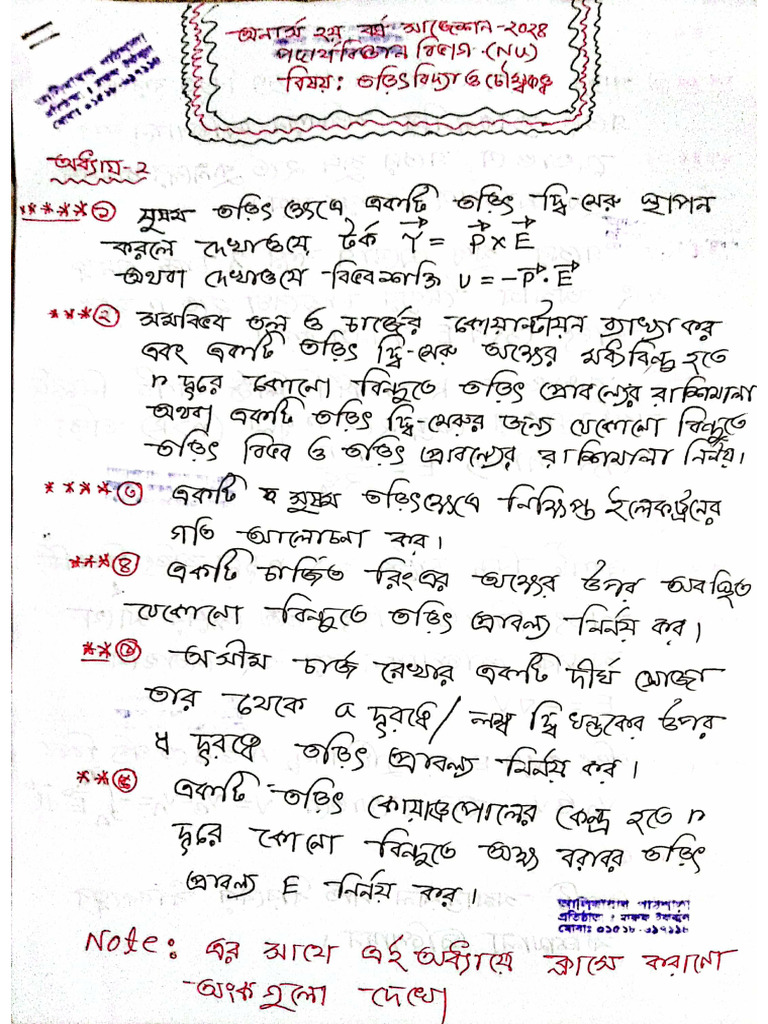 অনার্স ২য় বর্ষ সাজেশন-২০২৪
পদার্থবিজ্ঞান বিভাগ (NU)
বিষয়: তড়িৎবিদ্যা ও চৌম্বকত্ব
অধ্যায়-২
*****① সুষম তড়িৎ ক্ষেত্রে একটি তড়িৎ দ্বি-মেরু স্থাপন
করলে দেখাওযে টর্ক Ƴ⃗ = P⃗ × E⃗
অথবা দেখাওযে বিভবশক্তি U = -P⃗ · E⃗
***② সমবিভব তল ও চার্জের কোয়ান্টায়ন ব্যাখ্যা কর
এবং একটি তড়িৎ দ্বি-মেরু অক্ষের মধ্যবিন্দু হতে
r দূরে কোনো বিন্দুতে তড়িৎ প্রাবল্যের রাশিমালা
অথবা একটি তড়িৎ দ্বি-মেরুর জন্য যেকোনো বিন্দুতে
তড়িৎ বিভব ও তড়িৎ প্রাবল্যের রাশিমালা নির্নয়।
****③ একটি সুষম তড়িৎক্ষেত্রে নিক্ষিপ্ত ইলেকট্রনের
গতি আলোচনা কর।
***④ একটি চার্জিত রিং এর অক্ষের উপর অবস্থিত
যেকোনো বিন্দুতে তড়িৎ প্রাবল্য নির্নয় কর।
**⑤ অসীম চার্জ রেখার একটি দীর্ঘ সোজা
তার থেকে a দূরত্বে/ লম্ব দ্বি খন্ডকের উপর
দূরত্বে তড়িৎ প্রাবল্য নির্নয় কর।
**⑥ একটি তড়িৎ কোয়াড্রপোলের কেন্দ্র হতে r
দূরে কোনো বিন্দুতে অক্ষ বরাবর তড়িৎ
প্রাবল্য E নির্নয় কর।
Note: এর সাথে এই অধ্যায়ে ক্লাসে করানো
অংকগুলো দেখো